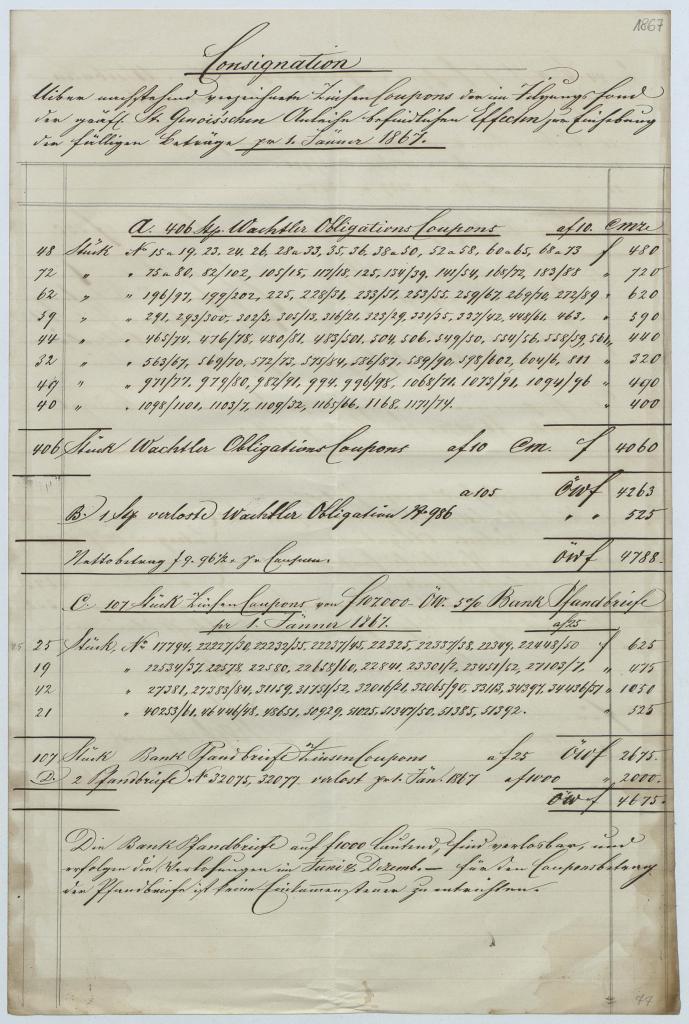 1867
Consignation
Ueber nachstehend verzeichnete Zinsen Coupons der im Tilgungsfond
der gräfl. St. Genoisschen Anleihe befindlichen Effecten zur Einhebung
der fälligen Beträge pr 1. Jänner 1867.
A. 406 Stp. Wachtler Obligations Coupons af 10. Cmze
48 Stück No 15 a 19, 23, 24, 26, 28 a 33, 35, 36, 38 a 50, 52 a 58, 60 a 65, 68 a 73 f 480
72 " " 75 a 80, 82/102, 105/15, 117/18, 125, 134/39, 141/54, 168/72, 183/88 " 720
62 " " 196/97, 199/202, 225, 228/31, 233/51, 253/55, 259/67, 269/70, 272/89 " 620
39 " " 291, 293/300, 302/3, 305/13, 316/21, 323/29, 331/35, 337/42, 448/61, 463. " 390
44 " " 465/74, 476/78, 480/81, 483/501, 504, 506, 549/50, 554/56, 558/59, 561 " 440
32 " " 563/67, 569/70, 572/73, 575/84, 586/87, 589/90, 598/602, 604/6, 811 " 320
49 " " 971/77, 979/80, 982/91, 994, 996/98, 1068/71, 1073/91, 1094/96 " 490
40 " " 1098/1101, 1103/7, 1109/32, 1165/66, 1168, 1171/74. " 400
406 Stück Wachtler Obligations Coupons af 10 Cm. f 4060
a 105 ÖWf 4263
B. 1 Stp verloste Wachtler Obligation No 986 " " 525
Nettobetrag f 9. 96½ pr Coupon. ÖWf 4788.
C. 107 Stück Zinsen Coupons von f 107000 ÖW. 5% Bank Pfandbriefe
pr 1. Jänner 1867. af 25
25 Stück No 17794, 22227/30, 22232/35, 22237/45, 22325, 22337/38, 22349, 22448/50 f 625
19 " 22534/37, 22578, 22580, 22658/60, 22841, 23301/2, 23451/52, 27103/7. " 475
42 " 27381, 27383/84, 31159, 31751/52, 32016/21, 32065/90, 33113, 34397, 34436/37 " 1050
21 " 40253/61, 46446/48, 48651, 50929, 51025, 51347/50, 51385, 51392. " 525
107 Stück Bank Pfandbriefe Zinsen Coupons af 25 ÖWf 2675.
D. 2 Pfandbriefe No 32075, 32077 verlost pr 1. Jän. 1867 af 1000 " 2000.
ÖWf 4675.
Die Bank Pfandbriefe auf f 1000 lautend, sind verlosbar, und
erfolgen die Verlosungen im Juni & Dezember – für den Couponsbetrag
der Pfandbriefe ist keine Einkommensteuer zu entrichten.
77